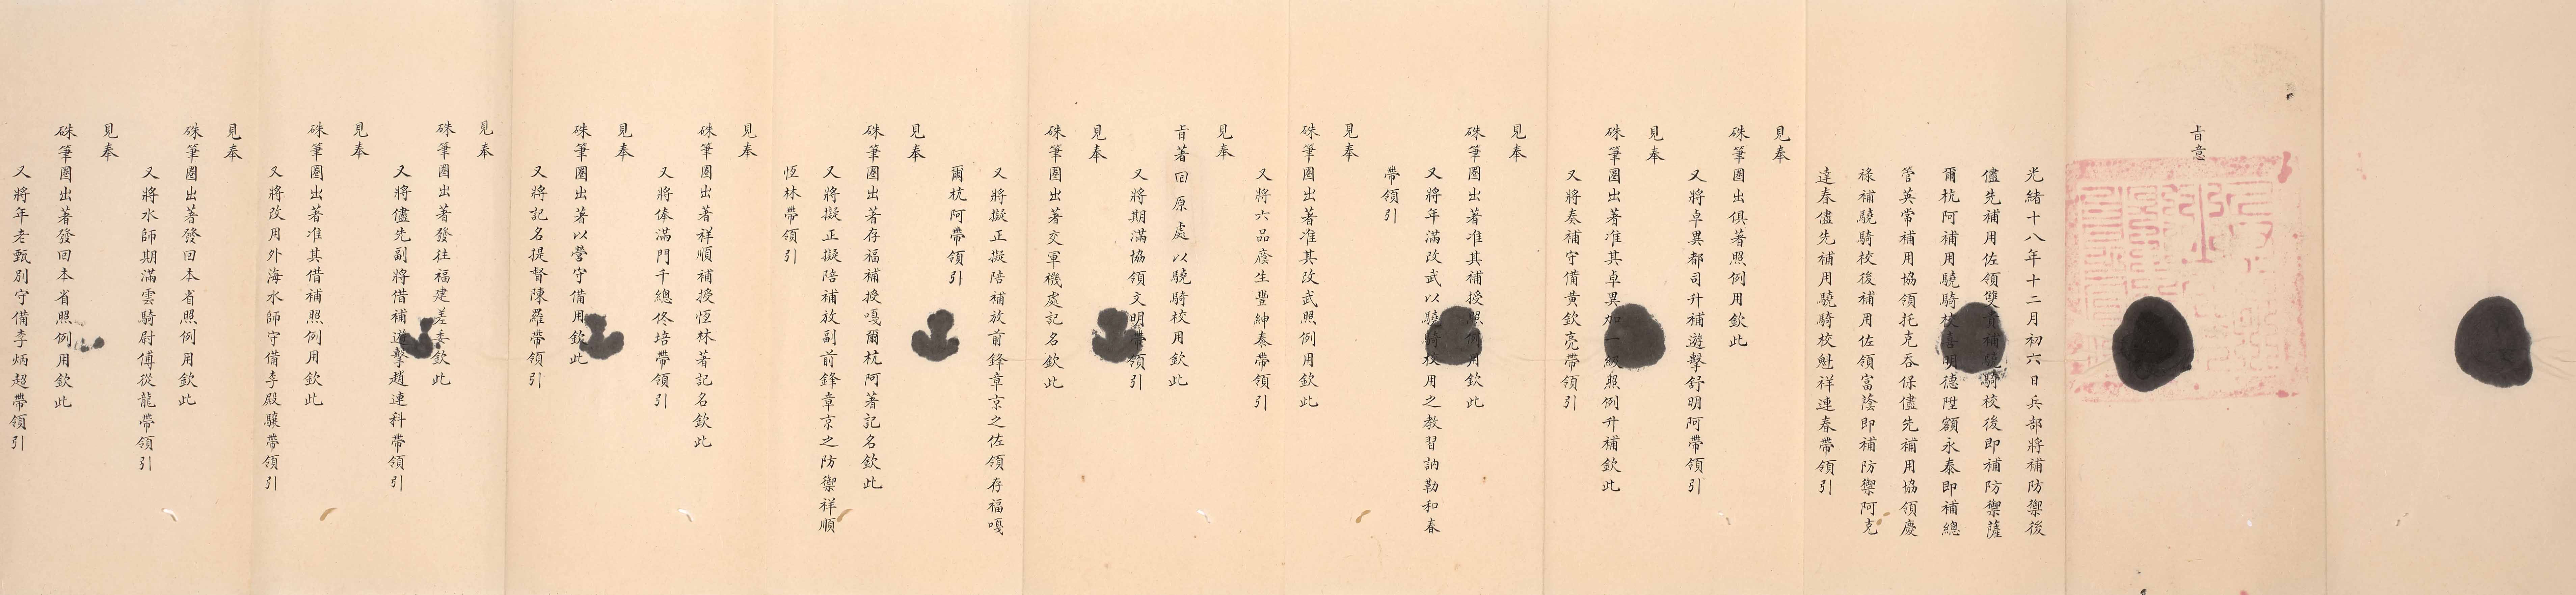 旨意
光緒十八年十二月初六日兵部將補防禦後
儘先補用佐領雙貴補驍騎校後即補防禦薩
爾杭阿補用驍騎校喜明德陞額永泰即補總
管英常補用協領托克吞保儘先補用協領慶
祿補驍騎校後補用佐領富蔭即補防禦阿克
達春儘先補用驍騎校魁祥連春帶領引
見奉
硃筆圈出俱著照例用欽此
又將卓異都司升補遊擊舒明阿帶領引
見奉
硃筆圈出著准其卓異加一級照例升補欽此
又將奏補守備黃欽亮帶領引
見奉
硃筆圈出著准其補授照例用欽此
又將年滿改武以驍騎校用之教習訥勒和春
帶領引
見奉
硃筆圈出著准其改武照例用欽此
又將六品廕生豐紳泰帶領引
見奉
旨著回原處以驍騎校用欽此
又將期滿協領文明帶領引
見奉
硃筆圈出著交軍機處記名欽此
又將擬正擬陪補放前鋒章京之佐領存福嘎
爾杭阿帶領引
見奉
硃筆圈出著存福補授嘎爾杭阿著記名欽此
又將擬正擬陪補放副前鋒章京之防禦祥順
恆林帶領引
見奉
硃筆圈出著祥順補授恆林著記名欽此
又將俸滿門千總佟培帶領引
見奉
硃筆圈出著以營守備用欽此
又將記名提督陳羅帶領引
見奉
硃筆圈出著發往福建差委欽此
又將儘先副將借補遊擊趙連科帶領引
見奉
硃筆圈出著准其借補照例用欽此
又將改用外海水師守備李殿驤帶領引
見奉
硃筆圈出著發回本省照例用欽此
又將水師期滿雲騎尉傅從龍帶領引
見奉
硃筆圈出著發回本省照例用欽此
又將年老甄別守備李炳超帶領引